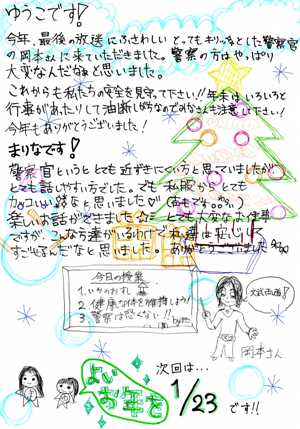 ゆうこです!
今年、最後の放送にふさわしい とってもキリッとした警察官
の岡本さんに来ていただきました。警察の方はやっぱり
大変なんだなと思いました。
これからも私たちの安全を見守って下さい!! 年末はいろいろと
行事があたりして油断しがちなのでみなさんも注意して下さい!
今年もありがとうございました!
まりなです!
警察官というととても近ずきにくい方と思っていましたが
とても話しやすい方でした。でも私服から とても
カッコいい
楽しいお話ができました☆ とても大変なお仕事
ですが、こんな方達がいるわけで私達は安心して
すごせるんだなと思いました。ありがとうございました
今日の授業
1. いかのおすし
2. 健康な体を維持しよう!
3. 警察は恐くない!!
文武両道!
岡本さん
よい
お年を
次回は…
1/23 です!!